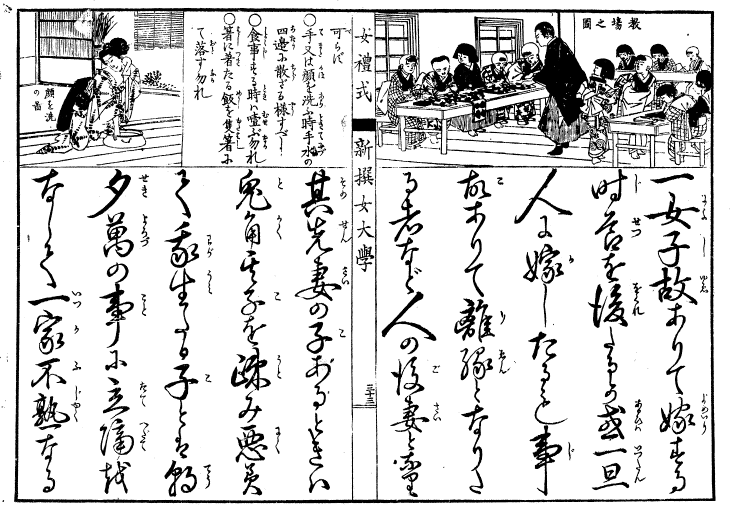 教場之圖
一女子故ありて嫁する
時節を後れたるか或一旦
人に嫁したるも事
故ありて離縁となりた
る者など人の後妻と
女禮式
新撰女大學
三十三
可らず
○手又は顔を洗ふ時ハ水の
四邊に散ざる様すべし
○食事する時ハ勿れ
○箸に着たる飯を隻箸に
て落す勿れ
顔を洗
の圖
其先妻の子あるときハ
兎角其子を疎み悪
て我生たる子とハ朝
夕萬の事に立隔
なして一家不熟なる